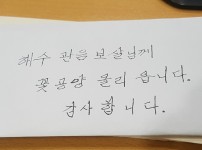 해수 관음보살님께
꽃 공양 올리 옵니다.
감사 합니다.